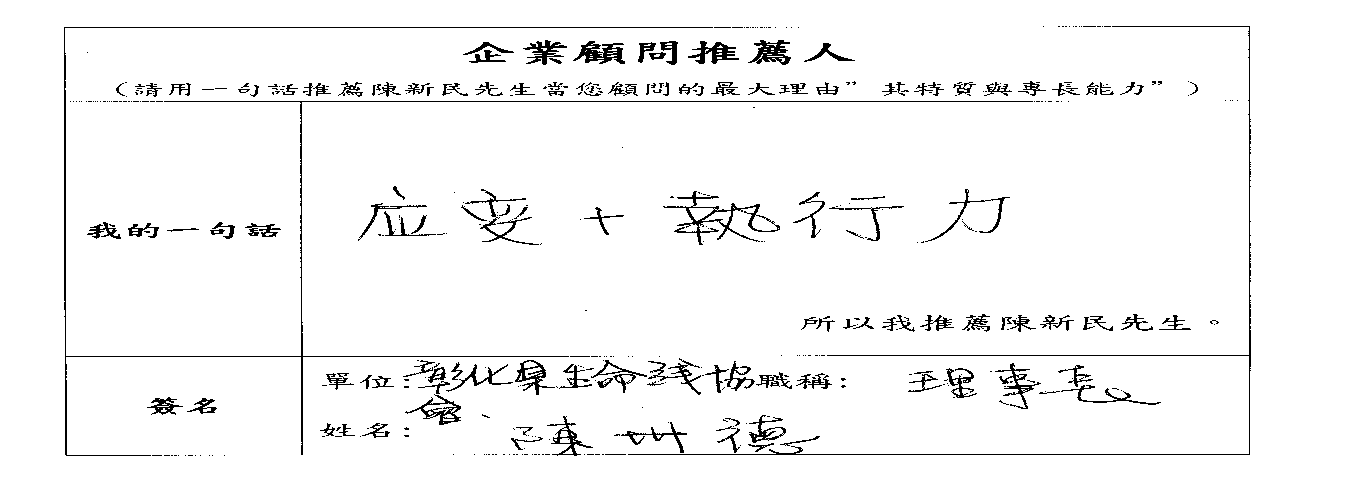 企業顧問推薦人
（請用一句話推薦陳新民先生當您顧問的最大理由”其特質與專長能力”）
我的一句話
应变+執行力
所以我推薦陳新民先生。
簽名
單位：彰化縣生命线協會 職稱：理事長
姓名：陳卅德